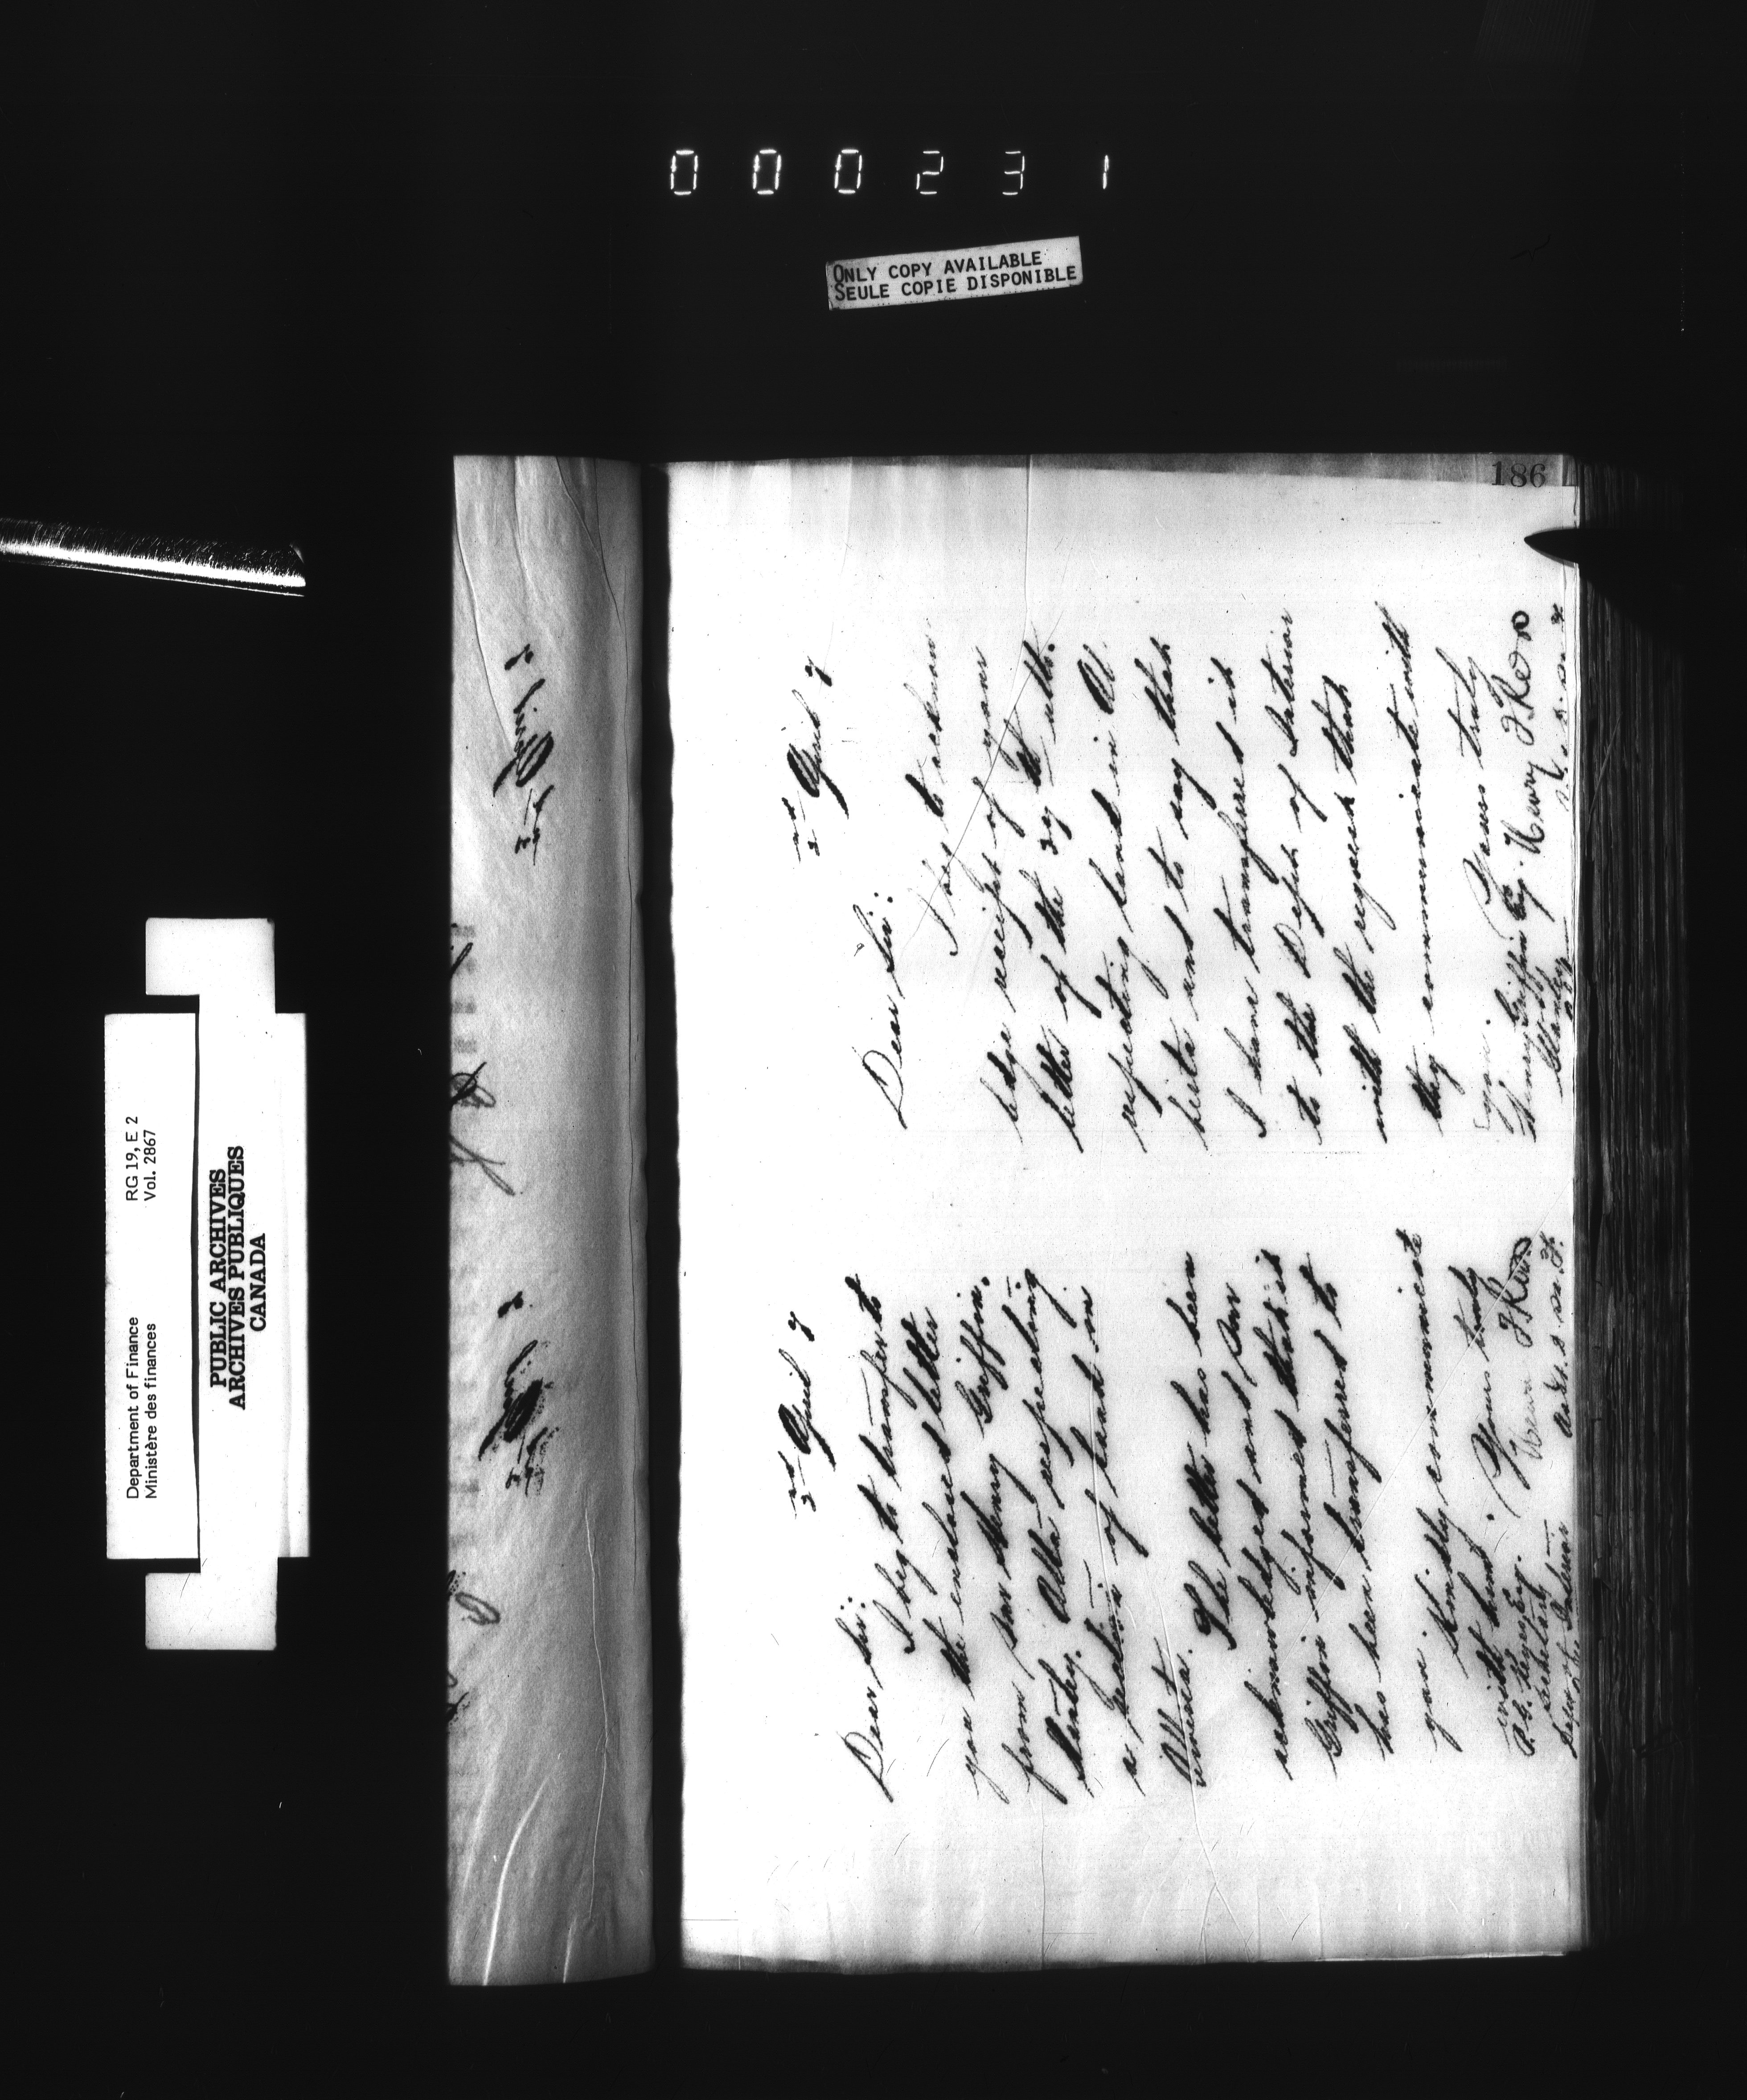 000231
ONLY COPY AVAILABLE
SEULE COPIE DISPONIBLE
Department of Finance RG 19, E 2
Ministère des finances Vol. 2867
PUBLIC ARCHIVES
ARCHIVES PUBLIQUES
CANADA
186
2nd April 7
Dear Sir:
I beg to transfer to
you the enclosed letter
from Mr Henry Griffin.
Stanby. Alta respecting
a section of land in
Alberta.
The letter has been
acknowledged and Mr
Griffin informed that it
has been transferred to
you. Kindly communicate
with him.
Yours truly
P. G. Keyes Esq.
Secretary
Dept of the Interior
2nd April 7
Dear Sir:
I beg to acknow
ledge receipt of your
letter of the 27th ulto.
respecting land in Al
berta and to say that
I have transferred it
to the Dept of Interior
with the request that
they communicate with
you.
Yours truly
Henry Griffin Esq.
Henry T. Ross